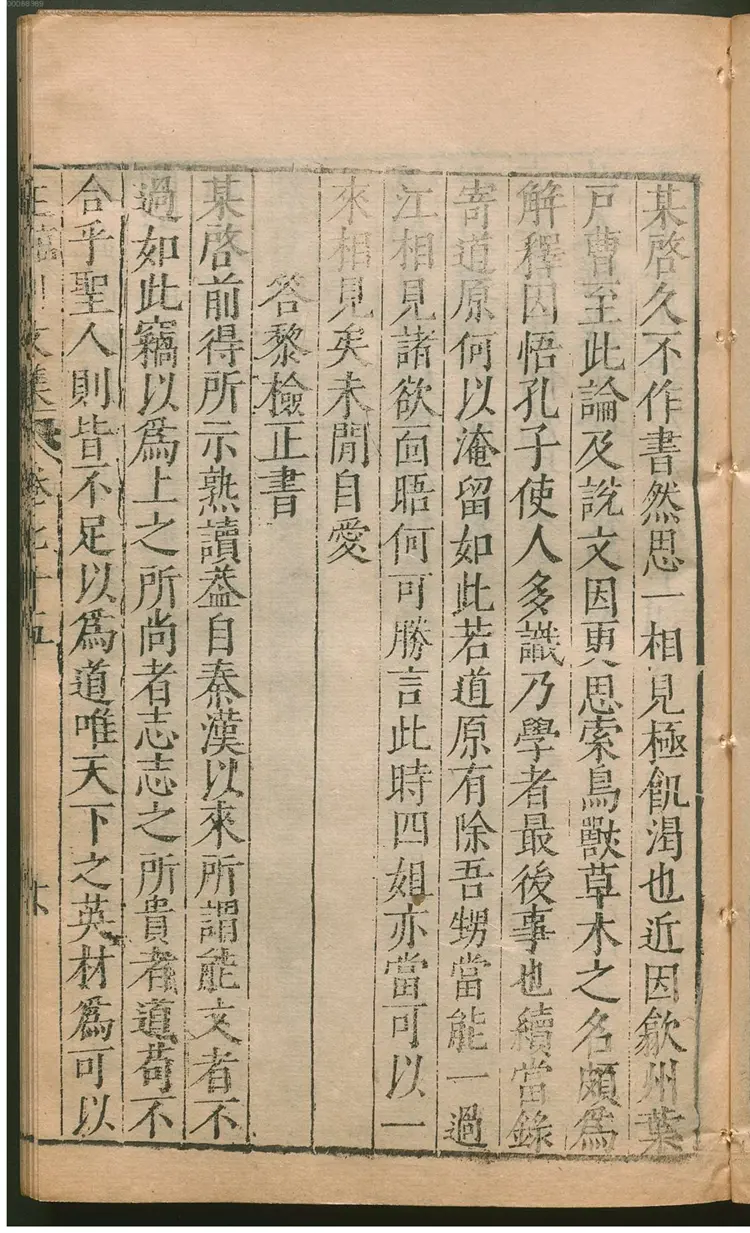 00068369
某啓久不作書然思一相見極飢渴也近因歙州葉
戸曹至此論及說文因更思索鳥獸草木之名頗爲
解釋因悟孔子使人多識乃學者最後事也續當錄
寄道原何以淹留如此若道原有除吾甥當能一過
江相見諸欲面晤何可勝言此時四姐亦當可以一
來相見矣未閒自愛
答黎檢正書
某啓前得所示熟讀葢自秦漢以來所謂能文者不
過如此竊以爲上之所尚者志志之所貴者道苟不
合乎聖人則皆不足以爲道唯天下之英材爲可以
王臨川文集 卷七十五